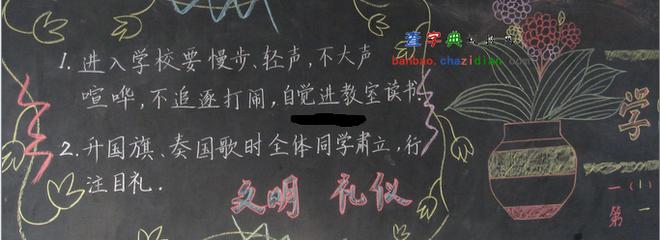 1. 进入学校要慢步,轻声,不大声
喧哗,不追逐打闹,自觉进教室读书.
2. 升国旗、奏国歌时全体同学肃立,行
注目礼.
文明 礼仪
查字典
banbao.chazidian.com
学
一(1
第一